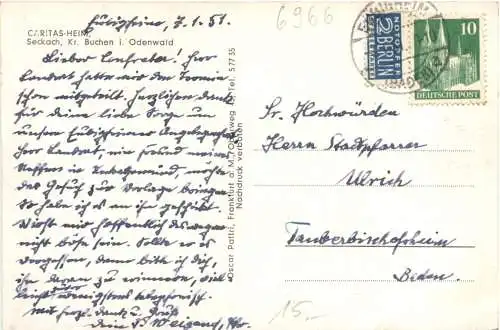 CARITAS-HEIM
Seckach, Kr. Buchen i. Odenwald
6966
Eubigheim, 7.1.51.
Lieber Confrater! Herr
Landrat hatte mir den Termin
schon mitgeteilt. Herzlichen Dank
für deine liebe Sorge um
unsere Eubigheimer Angelegenheit.
Herr Landrat, ein Freund meines
das Gesuch zur Vorlage bringen.
So habe ich es an ihn geschickt.
Wirst mir hoffentlich deswegen
nicht böse sein. Sollte er es
vergessen, dann bitte ich dich,
ihn daran zu erinnern, viel-
leicht telefonisch.
Mit herzl. Dank u. Gruß
dein Weigand, Pfr.
Oscar Pattri, Frankfurt a. M., Tel. 57735
Nachdruck verboten
NOTOPFER
2 BERLIN
STEUERMARKE
10
DEUTSCHE POST
Sr. Hochwürden
Herrn Stadtpfarrer
Ulrich
Tauberbischofsheim
Baden.
15,-